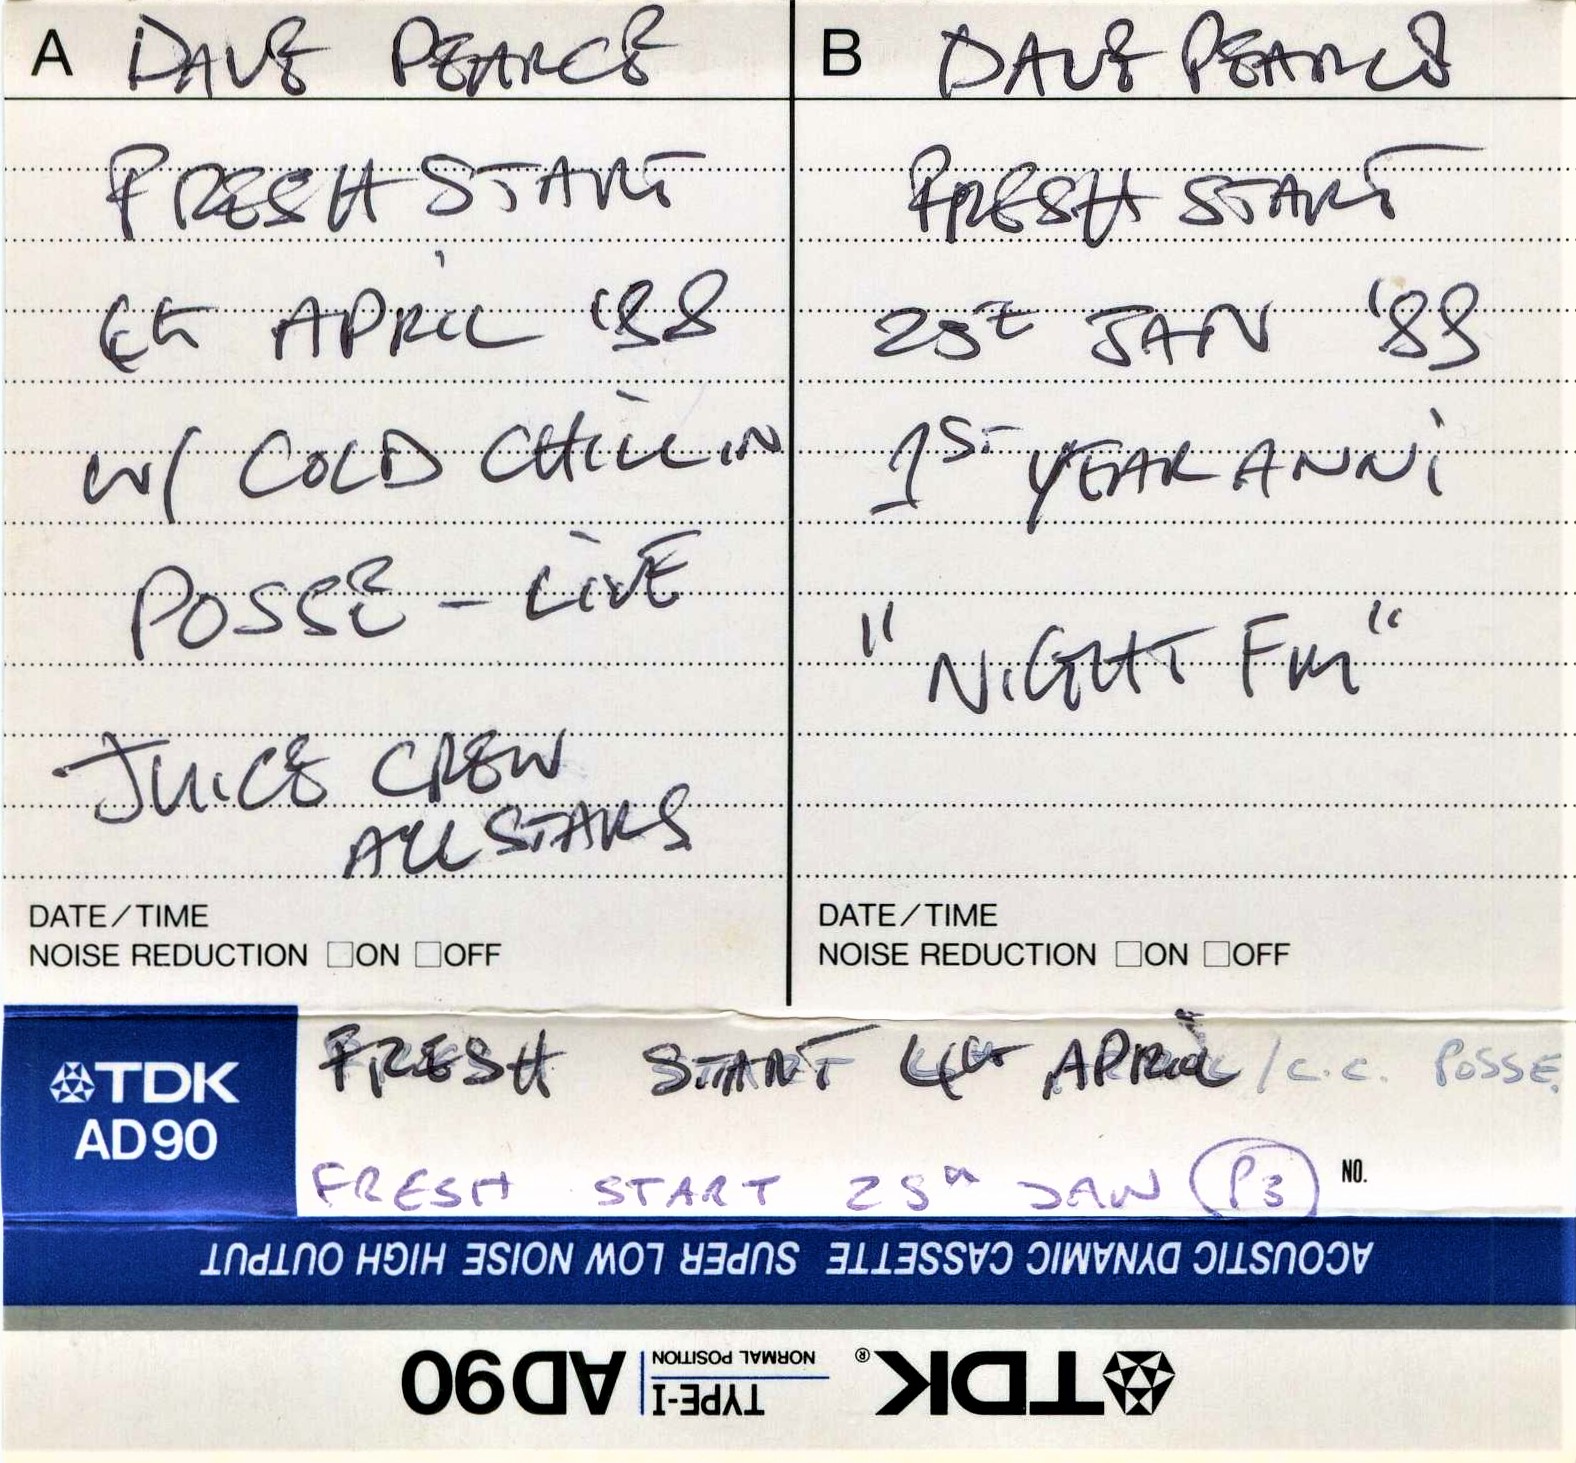 A DAVE PEARCE
FRESH START
4th APRIL '88
W/ COLD CHILLIN
POSSE - LIVE
JUICE CREW
ALL STARS
DATE/TIME
NOISE REDUCTION □ON □OFF
B DAVE PEARCE
FRESH START
25th JAN '88
1ST YEAR ANNI
"NIGHT FM"
DATE/TIME
NOISE REDUCTION □ON □OFF
TDK
AD90
FRESH START 4th APRIL / C.C. POSSE
FRESH START 25th JAN P3
NO.
ACOUSTIC DYNAMIC CASSETTE SUPER LOW NOISE HIGH OUTPUT
TDK® TYPE-I NORMAL POSITION AD90